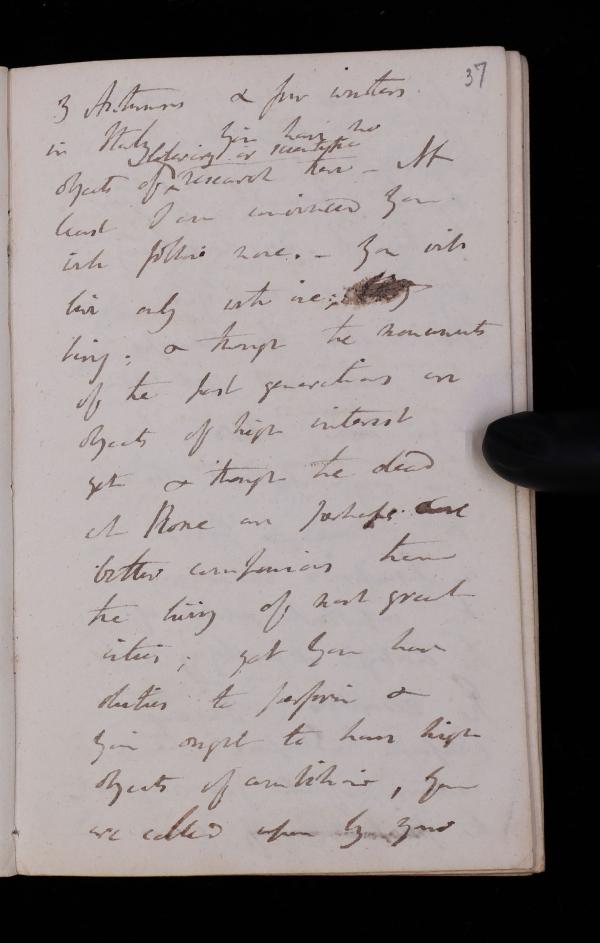 37
3 Autumns & few winters
in Italy you have no
literary or scientific
objects of research here - At
least I am convinced you
will follow none. - You will
live only with
living; & though the monuments
of the past generations are
objects of high interest
yet & though the dead
at Rome are perhaps
better companions than
the living of most great
cities; yet you have
duties to perform &
you ought to have high
objects of ambition, you
are called upon by your